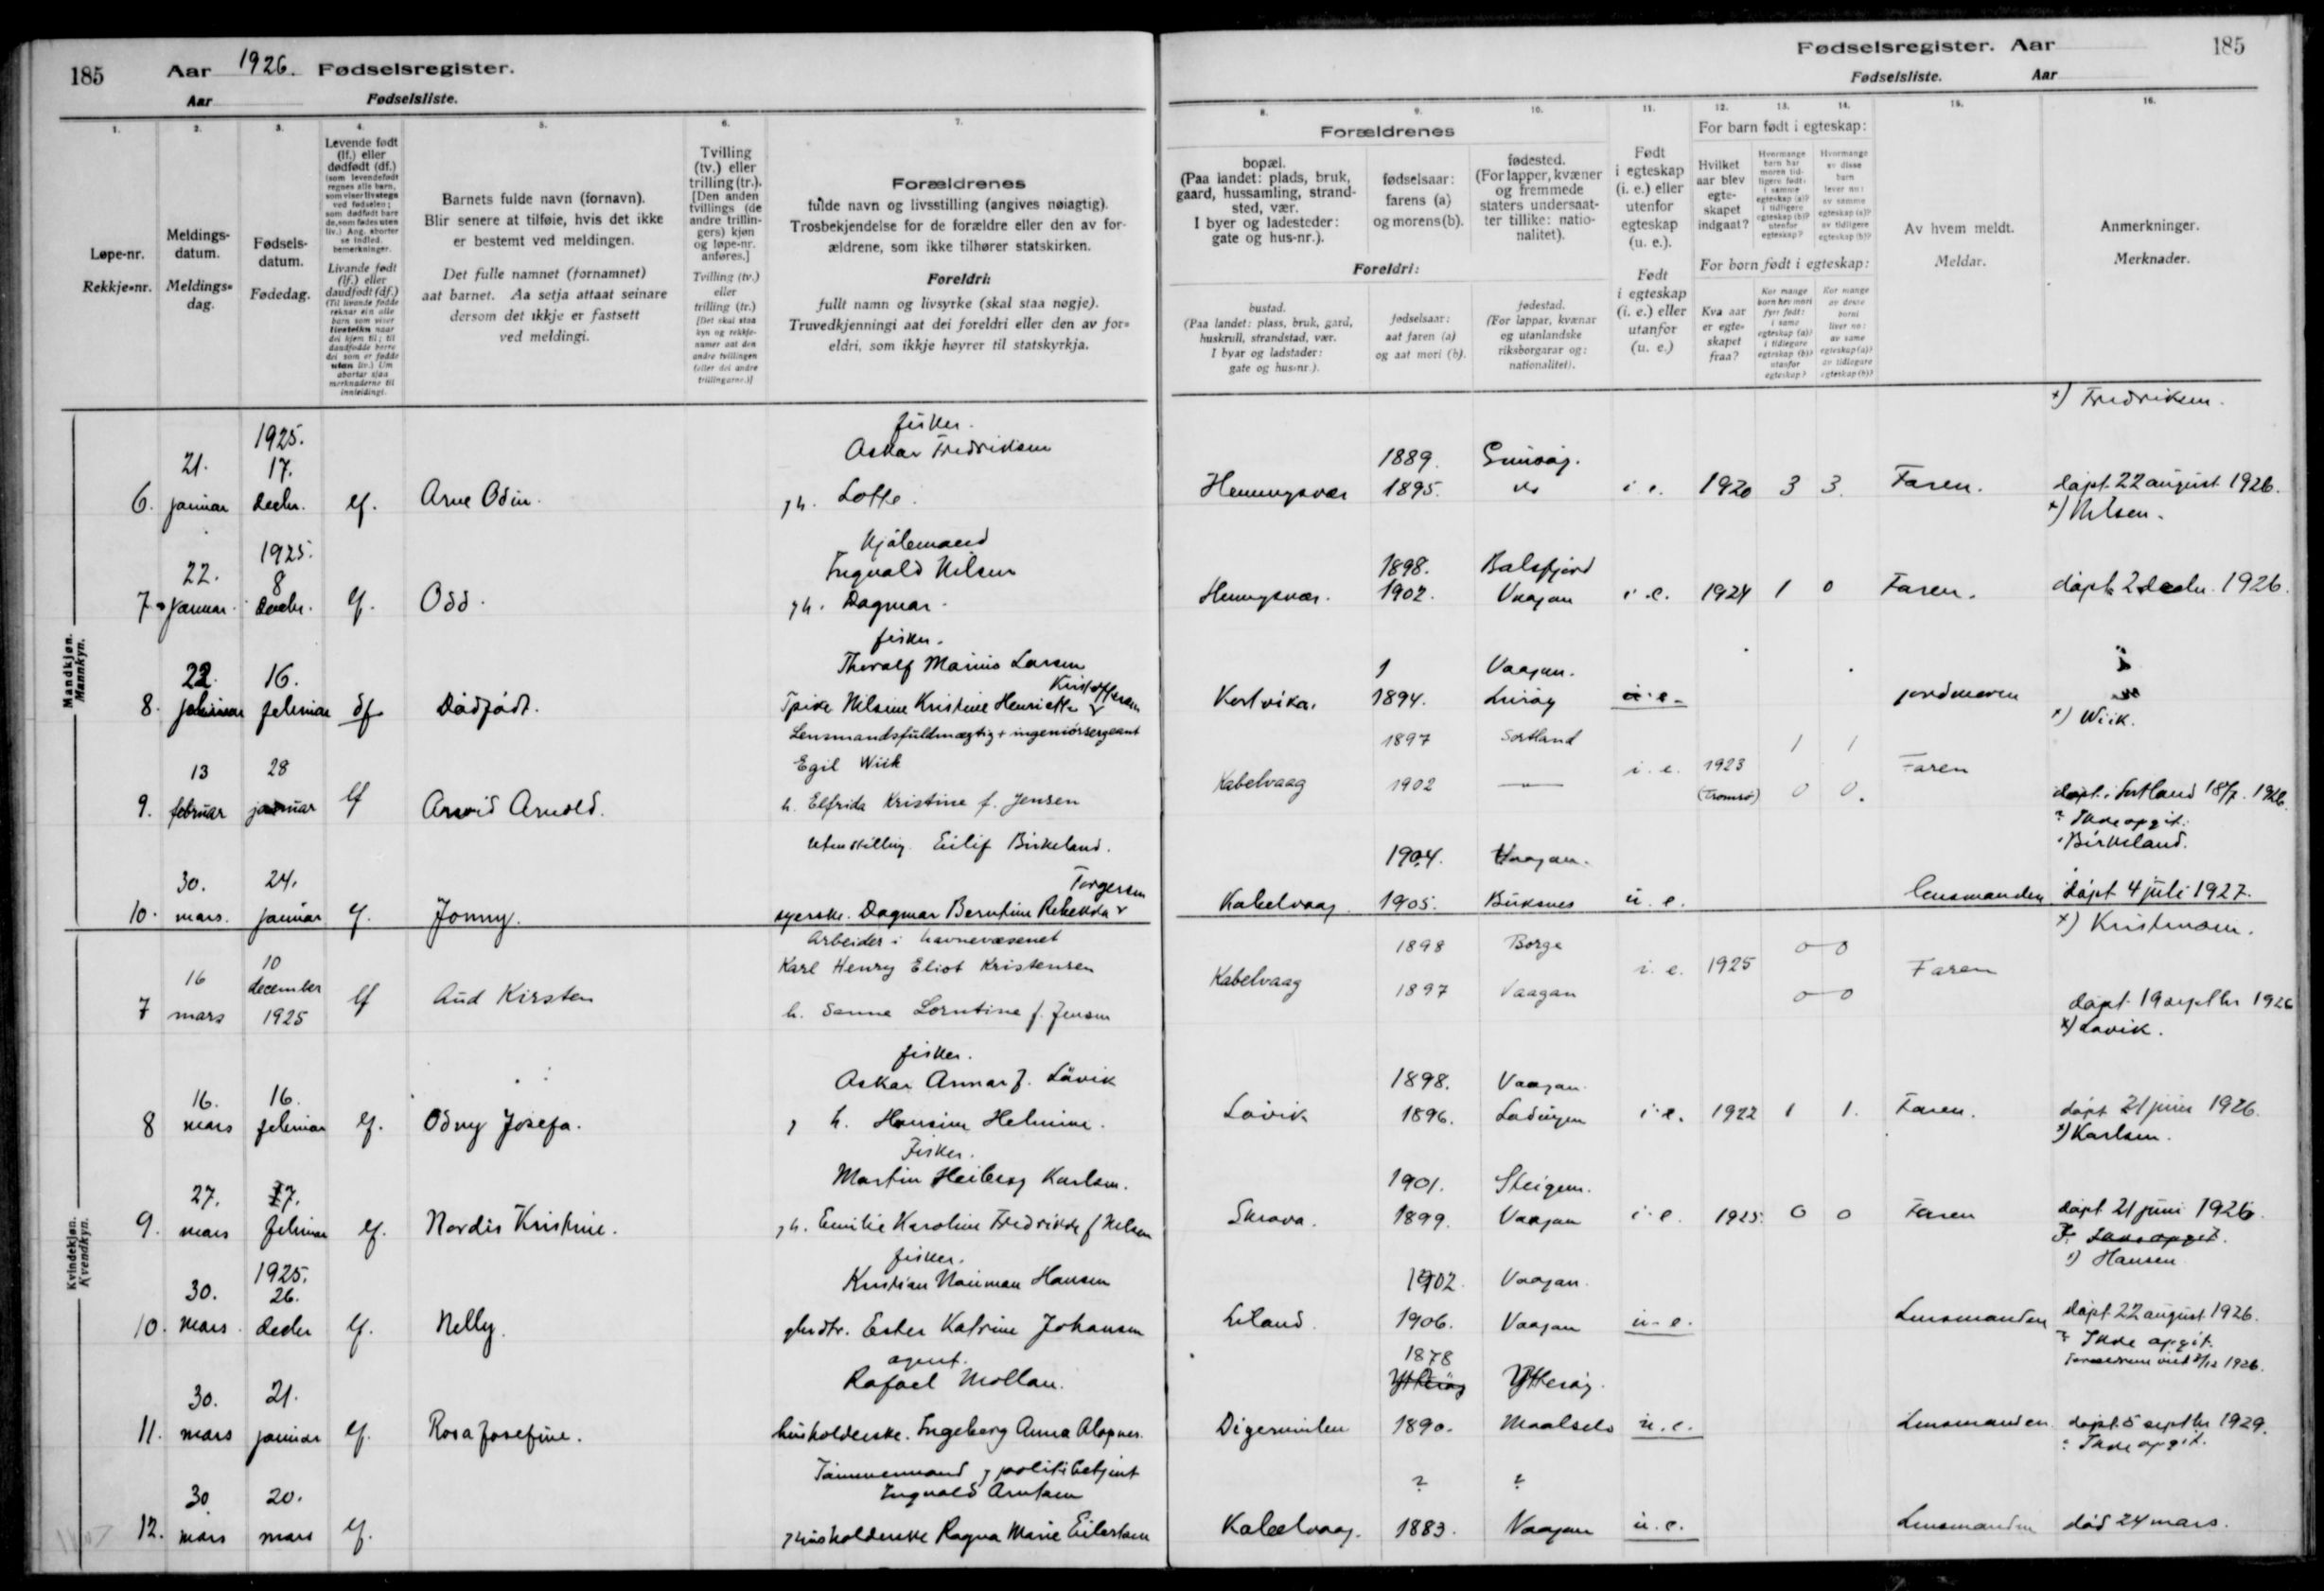 185 Aar 1926. Fødselsregister.
Aar Fødselsliste.
1. 2. 3. 4. 5. 6. 7.
Løpe-nr.
Rekkje-nr.
Meldings-
datum.
Meldings-
dag.
Fødsels-
datum.
Fødedag.
Levende født
(lf.) eller
dødfødt (df.)
(som levendefødt
regnes alle barn,
som viser livstegn
ved fødselen;
som dødfødt bare
de, som fødes uten
liv.) Ang. aborter
se indled.
bemerkninger.
Livande født
(lf.) eller
daudfødt (df.)
(Til livande fødde
reknar ein alle
born som viser
livsteikn naar
dei kjem til; til
daudfødde berre
dei som er fødde
utan liv.) Um
abortar sjaa
merknaderne til
innleidingi.
Barnets fulde navn (fornavn).
Blir senere at tilføie, hvis det ikke
er bestemt ved meldingen.
Det fulle namnet (fornamnet)
aat barnet. Aa setja attaat seinare
dersom det ikkje er fastsett
ved meldingi.
Tvilling
(tv.) eller
trilling (tr.).
[Den anden
tvillings (de
andre trillin-
gers) kjøn
og løpe-nr.
anføres.]
Tvilling (tv.)
eller
trilling (tr.)
[Det skal staa
kyn og rekkje-
numer aat den
andre tvillingen
(eller dei andre
trillingarne.)]
Forældrenes
fulde navn og livsstilling (angives nøiagtig).
Trosbekjendelse for de forældre eller den av for-
ældrene, som ikke tilhører statskirken.
Foreldri:
fullt namn og livsyrke (skal staa nøgje).
Truvedkjenningi aat dei foreldri eller den av for-
eldri, som ikkje høyrer til statskyrkja.
Fødselsregister. Aar 185
Fødselsliste. Aar
8. 9. 10. 11. 12. 13. 14. 15. 16.
Forældrenes
bopæl.
(Paa landet: plads, bruk,
gaard, hussamling, strand-
sted, vær.
I byer og ladesteder:
gate og hus-nr.).
fødselsaar:
farens (a)
og morens (b).
fødested.
(For lapper, kvæner
og fremmede
staters undersaat-
ter tillike: natio-
nalitet).
Foreldri:
bustad.
(Paa landet: plass, bruk, gard,
huskrull, strandstad, vær.
I byar og ladstader:
gate og hus-nr.).
fødselsaar:
aat faren (a)
og aat mori (b).
fødestad.
(For lappar, kvænar
og utanlandske
riksborgarar og:
nationalitet).
Født
i egteskap
(i. e.) eller
utenfor
egteskap
(u. e.).
Født
i egteskap
(i. e.) eller
utanfor
(u. e.)
For barn født i egteskap:
Hvilket
aar blev
egte-
skapet
indgaat?
Hvormange
barn har
moren tid-
ligere født:
i samme
egteskap (a)?
i tidligere
egteskap (b)?
utenfor
egteskap?
Hvormange
av disse
barn
lever nu:
av samme
egteskap (a)?
av tidligere
egteskap (b)?
For born født i egteskap:
Kva aar
er egte-
skapet
fraa?
Kor mange
born hev mori
fyrr født:
i same
egteskap (a)?
i tidlegare
egteskap (b)?
utanfor
egteskap?
Kor mange
av desse
borni
liver no:
av same
egteskap (a)?
av tidlegare
egteskap (b)?
Av hvem meldt.
Meldar.
Anmerkninger.
Merknader.
Mandkjøn.
Mannkyn.
x) Fredriksen.
1925. fisker.
21. 17. Askar Fredriksen 1889. Gimsøy.
6. januar decbr. lf. Arne Odin. g h. Lotte. Henningsvær 1895. do i. e. 1920 3 3. Faren. døpt 22 august 1926.
x) Nilsen.
1925. Hjálemand
22. 8 Ingvald Nilsen 1898. Balsfjord
7. januar. decbr. lf. Odd. g h. Dagmar. Henningsvær. 1902. Vaagan i. e. 1924 1 0 Faren. døpt 2 decbr. 1926.
fisker.
22. 16. Thoralf Marius Larsen Vaagan.
Kristoffersen
8. februar df Dødfødt. Pike Nilsine Kristine Henriette Kortvika. 1894. u. e. jordmoren
Lensmandsfuldmægtig + ingeniørsergeant 1897 Sortland 1 1 x) Wiik.
13 28 Egil Wiik i. e. 1923 Faren
9. februar januar lf Arvid Arnold. h. Elfrida Kristine f. Jensen Kabelvaag 1902 — (Tromsø) 0 0. døpt i Sortland 18/7. 1926.
? Ikke opgit.
Uten stilling. Eilif Birkeland. 1904. Vaagan. Birkeland.
30. 24. Torgersen
10. mars. januar lf. Jonny. syerske. Dagmar Berntine Rebekka Kabelvaag. 1905. Buksnes u. e. lensmanden døpt 4 juli 1927.
Kvindekjøn.
Kvendkyn.
Arbeider i havnevæsenet 1898 Borge 0 0 x) Kristensen.
16 10 Karl Henry Eliot Kristensen i. e. 1925 Faren
7 mars december 1925 lf Aud Kirsten h. Sanna Lorntine f. Jensen Kabelvaag 1897 Vaagan 0 0 døpt 19 septbr 1926
x) Løvik.
fisker.
16. 16. Askar Annar J. Løvik 1898. Vaagan.
8 mars februar lf. Odny Josefa. g h. Hansine Helmine. Løvik 1896. Lødingen i. e. 1922 1 1. Faren. døpt 21 juni 1926.
x) Karlsen.
Fisker.
27. 17. Martin Heiberg Karlsen. 1901. Steigen.
9. mars februar lf. Nordis Kristine. g h. Emilie Karoline Fredrikke f Nilsen Skrova. 1899. Vaagan i. e. 1925. 0 0 Faren døpt 21 juni 1926.
x) Hansen
1925. fisker.
30. 26. Kristian Nauman Hansen 1902. Vaagan.
10. mars. decbr lf. Nelly. Ester Katrine Johansen Liland. 1906. Vaagan u. e. Lensmanden døpt 22 august 1926.
? Ikke opgit.
Forældrene viet 3/12 1926.
agent. 1878
30. 21. Rafael Mollan. Ytterøy.
11. mars januar lf. Rosa Josefine. husholderske. Ingeborg Anna Olapnes. Digermulen 1890. Maalselv u. e. Lensmanden døpt 5 septbr 1929.
? Ikke opgit.
Tømmermand g politibetjent ? ?
30 20. Ingvald Arntsen
12. mars mars lf. g husholderske Ragna Marie Eilertsen Kabelvaag. 1883. Vaagan u. e. Lensmanden død 24 mars.